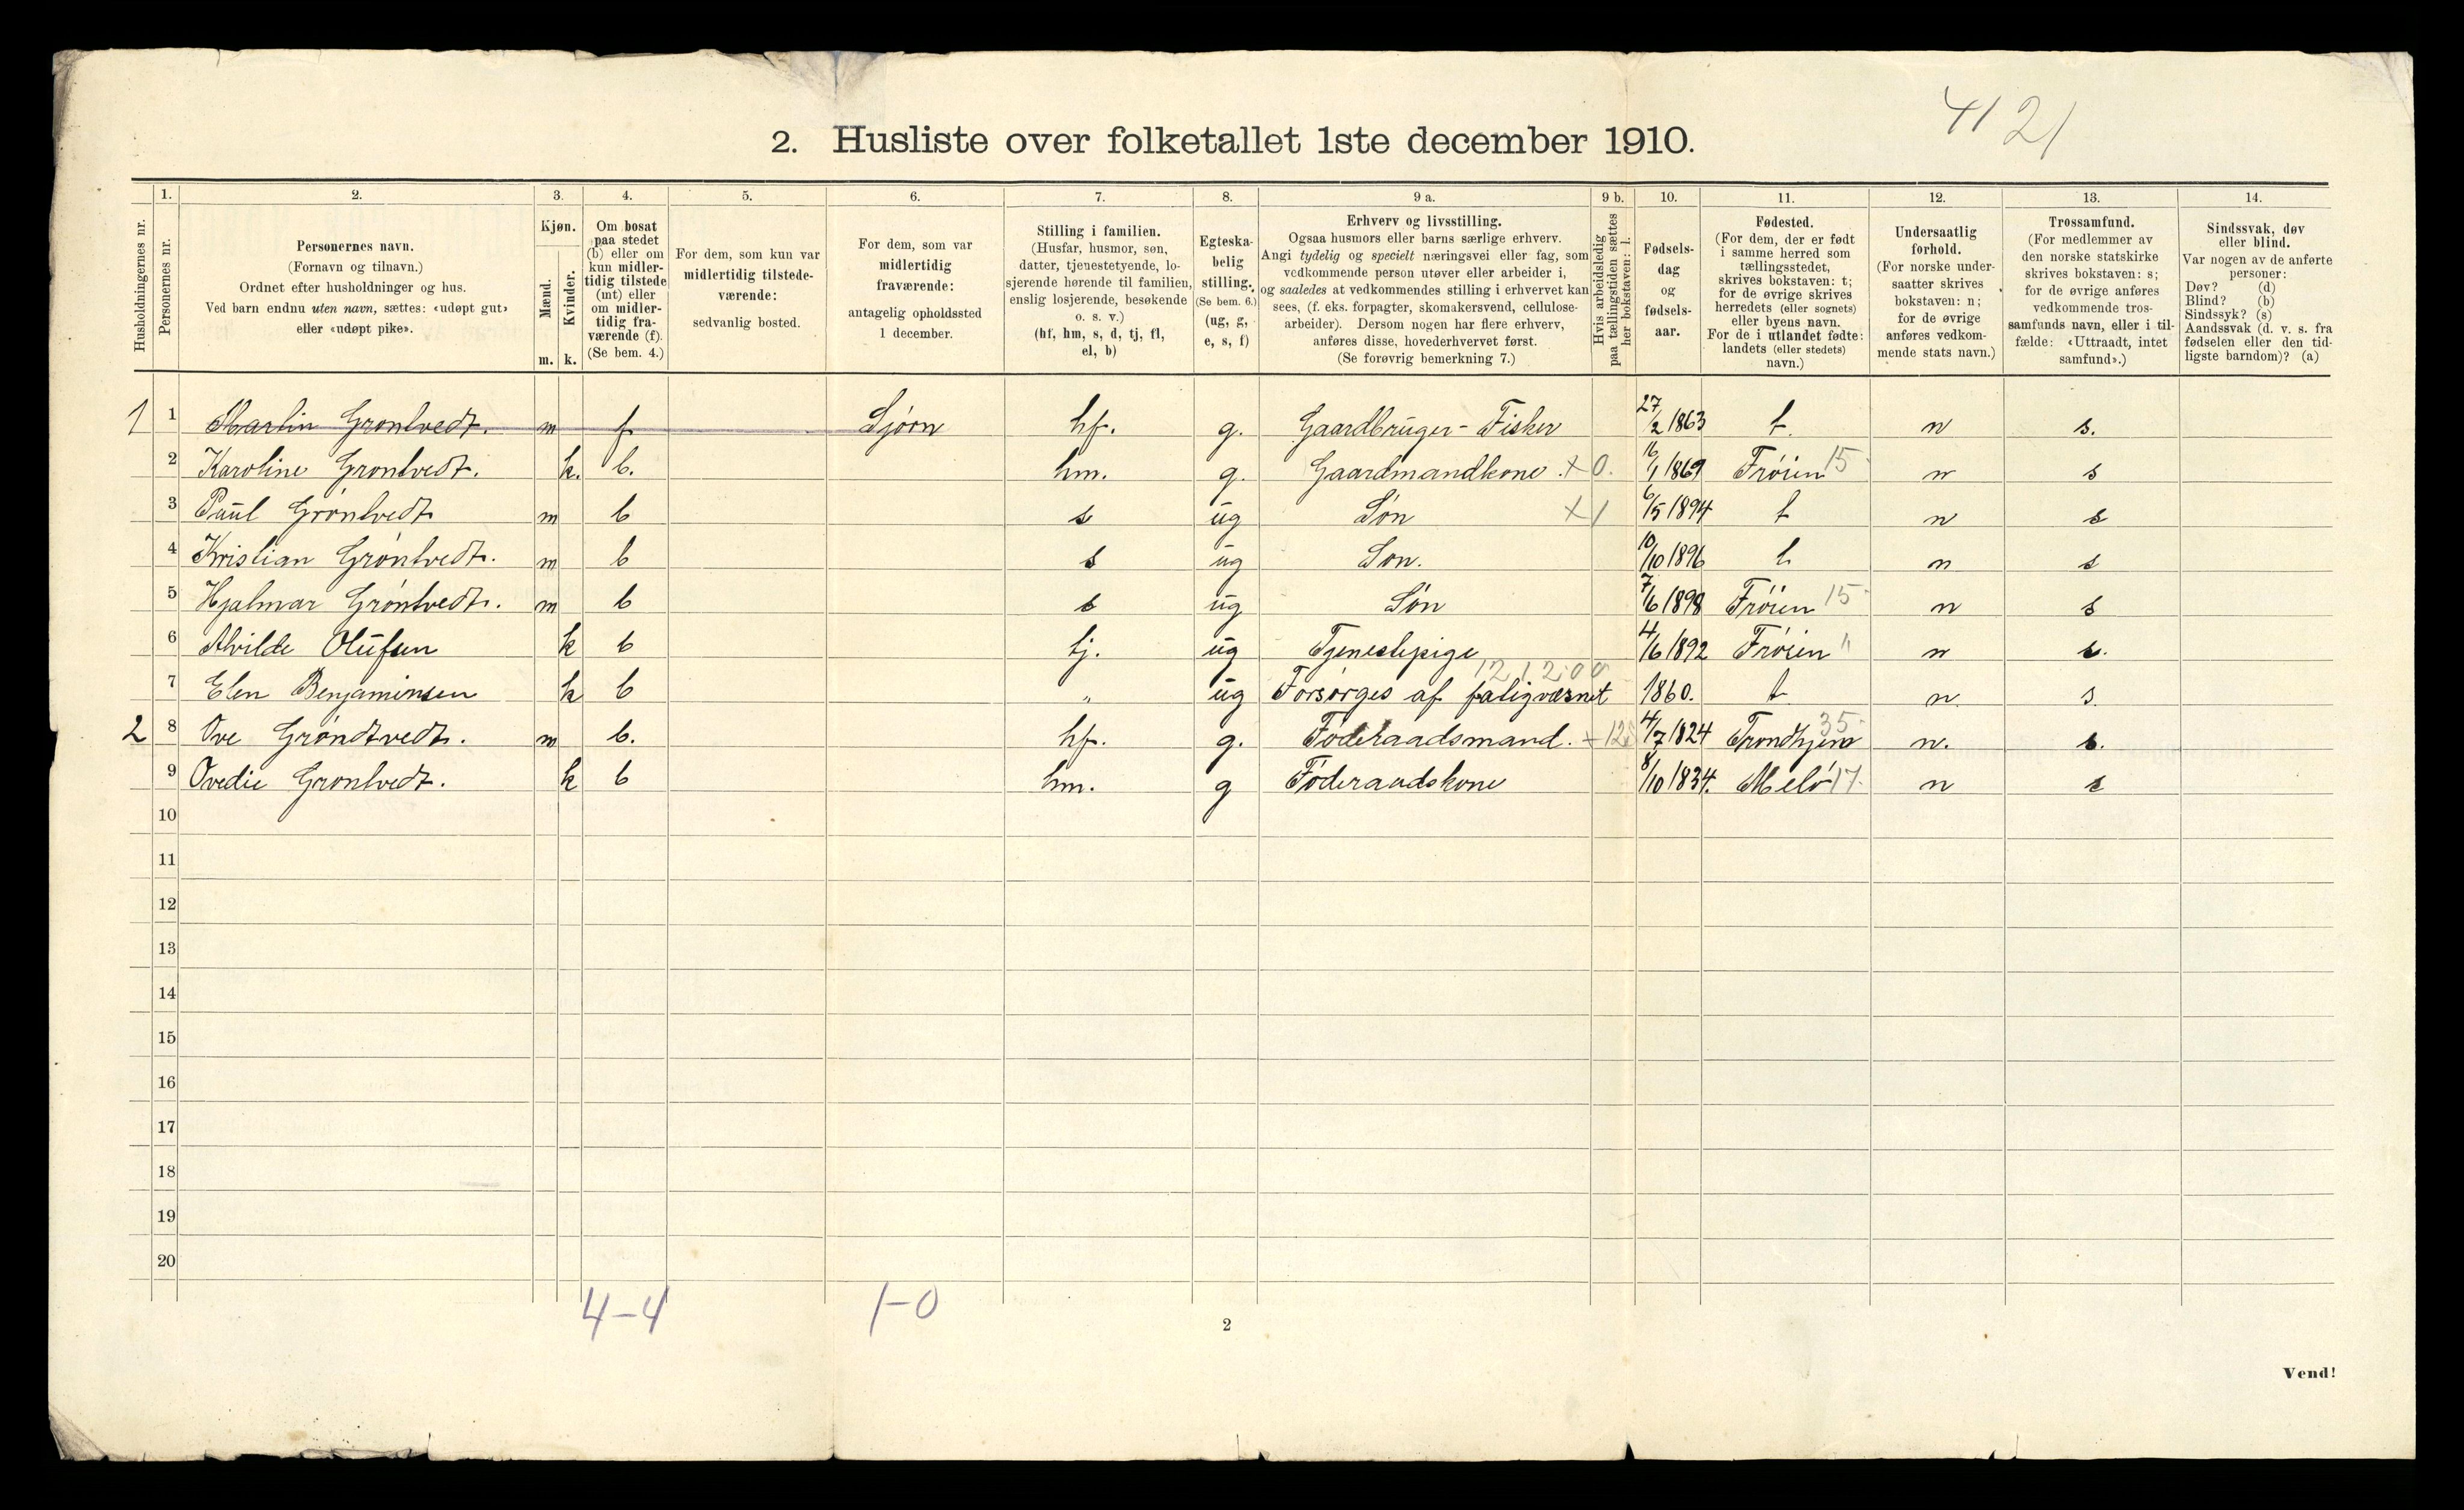 41 21
2. Husliste over folketallet 1ste december 1910.
1. 2. 3. 4. 5. 6. 7. 8. 9 a. 9 b. 10. 11. 12. 13. 14.
Husholdningernes nr.
Personernes nr.
Personernes navn.
(Fornavn og tilnavn.)
Ordnet efter husholdninger og hus.
Ved barn endnu uten navn, sættes: «udøpt gut»
eller «udøpt pike».
Kjøn.
Mænd.
Kvinder.
m. k.
Om bosat
paa stedet
(b) eller om
kun midler-
tidig tilstede
(mt) eller
om midler-
tidig fra-
værende (f).
(Se bem. 4.)
For dem, som kun var
midlertidig tilstede-
værende:
sedvanlig bosted.
For dem, som var
midlertidig
fraværende:
antagelig opholdssted
1 december.
Stilling i familien.
(Husfar, husmor, søn,
datter, tjenestetyende, lo-
sjerende hørende til familien,
enslig losjerende, besøkende
o. s. v.)
(hf, hm, s, d, tj, fl,
el, b)
Egteska-
belig
stilling.
(Se bem. 6.)
(ug, g,
e, s, f)
Erhverv og livsstilling.
Ogsaa husmors eller barns særlige erhverv.
Angi tydelig og specielt næringsvei eller fag, som
vedkommende person utøver eller arbeider i,
og saaledes at vedkommendes stilling i erhvervet kan
sees, (f. eks. forpagter, skomakersvend, cellulose-
arbeider). Dersom nogen har flere erhverv,
anføres disse, hovederhvervet først.
(Se forøvrig bemerkning 7.)
Hvis arbeidsledig
paa tællingstiden sættes
her bokstaven: l.
Fødsels-
dag
og
fødsels-
aar.
Fødested.
(For dem, der er født
i samme herred som
tællingsstedet,
skrives bokstaven: t;
for de øvrige skrives
herredets (eller sognets)
eller byens navn.
For de i utlandet fødte:
landets (eller stedets)
navn.)
Undersaatlig
forhold.
(For norske under-
saatter skrives
bokstaven: n;
for de øvrige
anføres vedkom-
mende stats navn.)
Trossamfund.
(For medlemmer av
den norske statskirke
skrives bokstaven: s;
for de øvrige anføres
vedkommende tros-
samfunds navn, eller i til-
fælde: «Uttraadt, intet
samfund».)
Sindssvak, døv
eller blind.
Var nogen av de anførte
personer:
Døv? (d)
Blind? (b)
Sindssyk? (s)
Aandssvak (d. v. s. fra
fødselen eller den tid-
ligste barndom)? (a)
1 1 Martin Grøntvedt. m f Sjøen hf. g. Gaardbruger - Fisker 27/2 1863 t. n s.
2 Karoline Grøntvedt. k. b. hm. g. Gaardmandkone × 0. 16/1 1869 Frøien 15 n s
3 Paul Grøntvedt m b s ug Søn × 1 6/5 1894 t n s
4 Kristian Grøntvedt. m b s ug Søn. 10/10 1896 t n s
5 Hjalmar Grøntvedt. m b s ug Søn 7/6 1898 Frøien 15 n s
6 Alvilde Olufsen k b tj. ug Tjenestepige 4/6 1892 Frøien " n s.
12.12.00
7 Elen Benjaminsen k b " ug Forsørges af fatigvæsnet 1860. t n. s.
2 8 Ove Grøndtvedt. m b. hf. g. Føderaadsmand. 4/7 1824 Trondhjem 35 n. s.
9 Ovedie Grøntvedt. k b hm. g Føderaadskone 8/10 1834. Melø 17. n s
10
11
12
13
14
15
16
17
18
19
20
4-4 1-0
2
Vend!